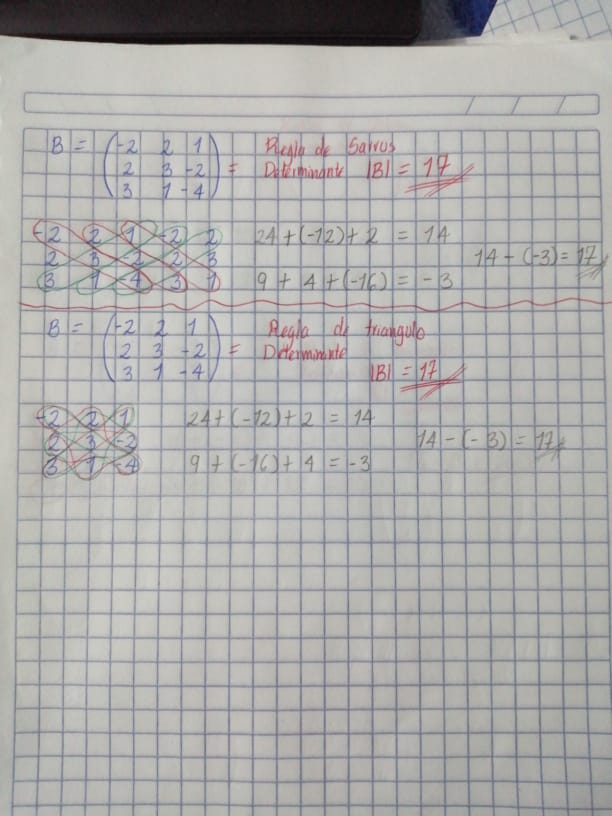 B = (-2 2 1
2 3 -2
3 1 -4) =
Regla de Sarrus
Determinante |B| = 17
-2 2 1 -2 2
2 3 -2 2 3
3 1 -4 3 1
24+(-12)+2 = 14
9 + 4 +(-16) = -3
14 - (-3) = 17
B = (-2 2 1
2 3 -2
3 1 -4) =
Regla de triangulo
Determinante
|B| = 17
-2 2 1
2 3 -2
3 1 -4
24+(-12)+2 = 14
9 +(-16)+ 4 = -3
14 - (-3) = 17